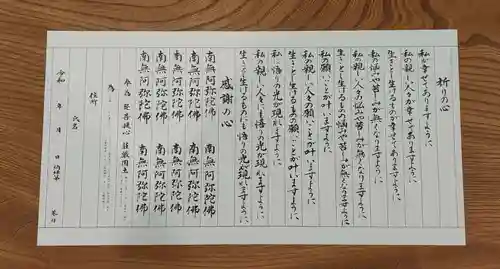 祈りの心
私が幸せでありますように
私の親しい人々が幸せでありますように
生きとし生けるものが幸せでありますように
私の悩みや苦しみが無くなりますように
私の親しい人々の悩みや苦しみが無くなりますように
生きとし生けるものの悩みや苦しみが無くなりますように
私の願いごとが叶いますように
私の親しい人々の願いごとが叶いますように
生きとし生けるものの願いごとが叶いますように
私に悟りの光が現れますように
私の親しい人々にも悟りの光が現れますように
生きとし生けるものにも悟りの光が現れますように
感謝の心
南無阿弥陀佛 南無阿弥陀佛
南無阿弥陀佛 南無阿弥陀佛
南無阿弥陀佛 南無阿弥陀佛
南無阿弥陀佛 南無阿弥陀佛
南無阿弥陀佛 南無阿弥陀佛
奉為 發菩提心 莊嚴国土
為
住所
氏名
令和 年 月 日